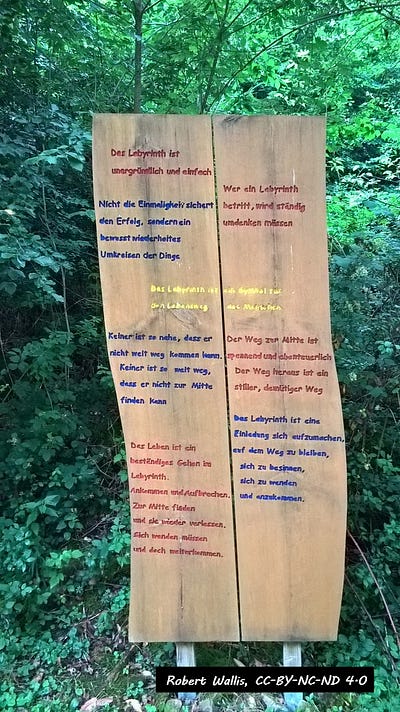 Das Labyrinth ist
unergründlich und einfach
Nicht die Einmaligkeit sichert
den Erfolg, sondern ein
bewusst wiederholtes
Umkreisen der Dinge
Wer ein Labyrinth
betritt, wird ständig
umdenken müssen
Das Labyrinth ist ein Symbol für
den Lebensweg des Menschen
Keiner ist so nahe, dass er
nicht weit weg kommen kann.
Keiner ist so weit weg,
dass er nicht zur Mitte
finden kann
Der Weg zur Mitte ist
spannend und abenteuerlich
Der Weg heraus ist ein
stiller, demütiger Weg
Das Leben ist ein
beständiges Gehen im
Labyrinth.
Ankommen und Aufbrechen.
Zur Mitte finden
und sie wieder verlassen.
Sich wenden müssen
und doch weiterkommen.
Das Labyrinth ist eine
Einladung sich aufzumachen,
auf dem Weg zu bleiben,
sich zu besinnen,
sich zu wenden
und anzukommen.
Robert Wallis, CC-BY-NC-ND 4.0